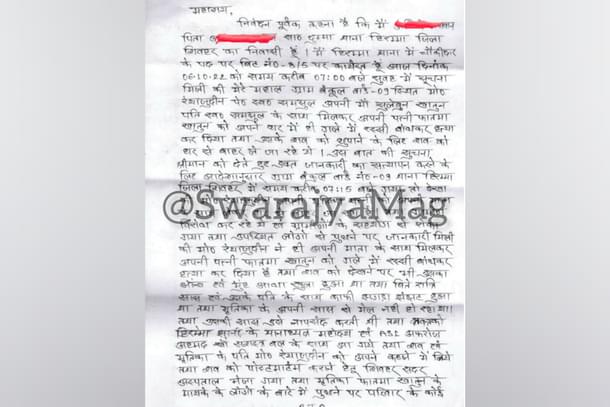 महाशय,
निवेदन पूर्वक कहना है कि मैं
पिता साо डुम्मा थाना हिरम्मा जिला
शिवहर का निवासी हूँ। मैं हिरम्मा थाना में चौकीदार
के पद पर बिट नं०-8/5 पर कार्यरत हूँ आज दिनांक
06.10.22 को समय करीब 07:00 बजे सुबह में सूचना
मिली की मेरे महाल ग्राम बकूल वार्ड-09 स्थित मो०
रेयाजुद्दीन पे० स्व० समसुल अपनी माँ खातुन
पति स्व० समसुल के साथ मिलकर अपनी पत्नी फातमा
खातुन को अपने घर में ही गले में रस्सी बांधकर हत्या
कर दिया तथा उसके शव को छुपाने के लिए शव को
घर से बाहर ले जा रहे थे। इस बात की सूचना
श्रीमान को देते हुए उक्त जानकारी का सत्यापन करने के
लिए आदेशानुसार ग्राम बकूल वार्ड नं०-09 थाना हिरम्मा
जिला शिवहर में समय करीब 07:15 बजे गया तो देखा
@SwarajyaMag
विरोध कर रहे थे ग्रामीणों के सहयोग से रोका
गया तथा उपस्थित लोगों से पुछने पर जानकारी मिली
की मो० रेयाजुद्दीन ने ही अपनी माता के साथ मिलकर
अपनी पत्नी फातमा खातुन को गले में रस्सी बांधकर
हत्या कर दिया है तथा शव को देखने पर भी उसका
आँख एवं मुंह आधा खुला हुआ था तथा बिते रात्रि
सास एवं उसके पति के साथ काफी झगड़ा झंझट हुआ
था तथा मृतिका के अपनी सास से मेल नहीं हो रहा था।
तथा उसकी सास इसे नापसंद करती थी तथा
हिरम्मा थाना के थानाध्यक्ष महोदय एवं ASI अफरोज
अहमद सशस्त्र बल के साथ आ गये तथा शव एवं
मृतिका के पति मो० रेयाजुद्दीन को अपने कब्जे में लिये
तथा शव को पोस्टमार्टम कराने हेतु शिवहर सदर
अस्पताल भेजा गया तथा मृतिका फातमा खातुन के
मायके के लोगों के बारे में पुछने पर परिवार के कोई
P.T.O